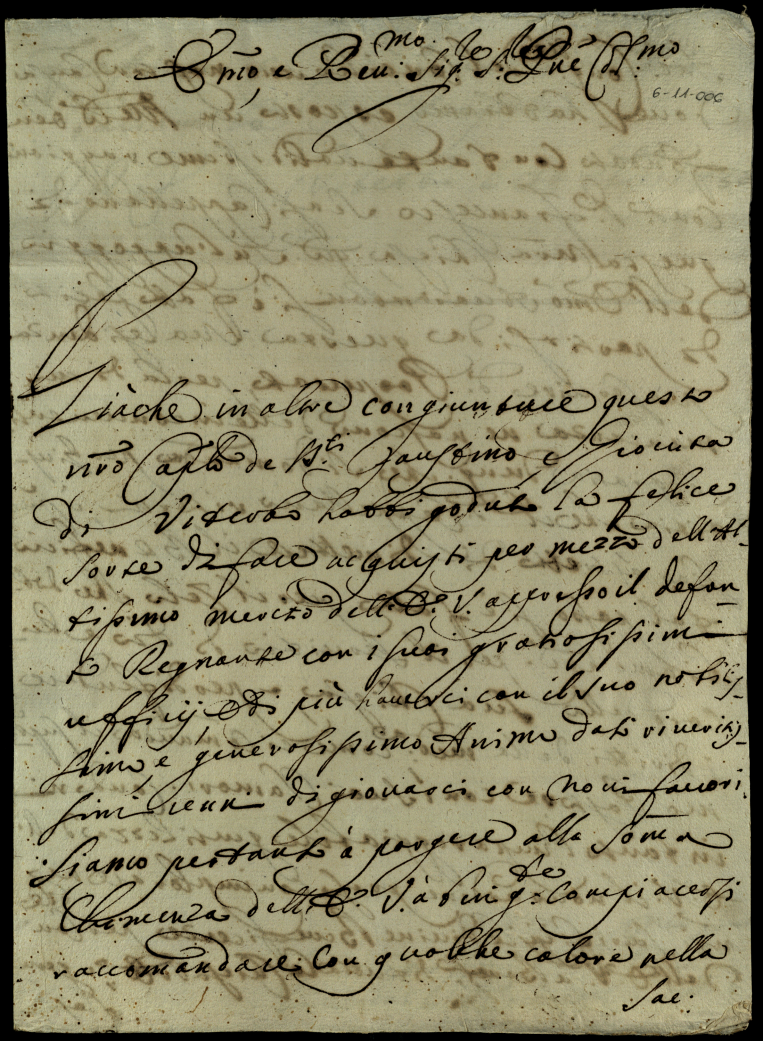 Emo, e Reu:mo Sig:re S:r Pne Col:mo
6-11-006
Giàche in altre congiunture questo
nro Caplo de SS:ti Faustino, e Giouita
di Viterbo habbi goduto la felice
sorte di fare acquisti per mezzo dell'Al-
tissimo merito dell'E: V. appresso il defon-
to Regnante con i suoi gratiosissimi
ufficij, e di più hauerci con il suo nobilis-
simo, e generosissimo Animo dati riueritis-
simi cenni di giouarci con noui fauori
Siamo pertanto à porgere alla Som̃a
Clemenza dell'E: V. à compiacersi
raccomandare con qualche calore nella
Sac: